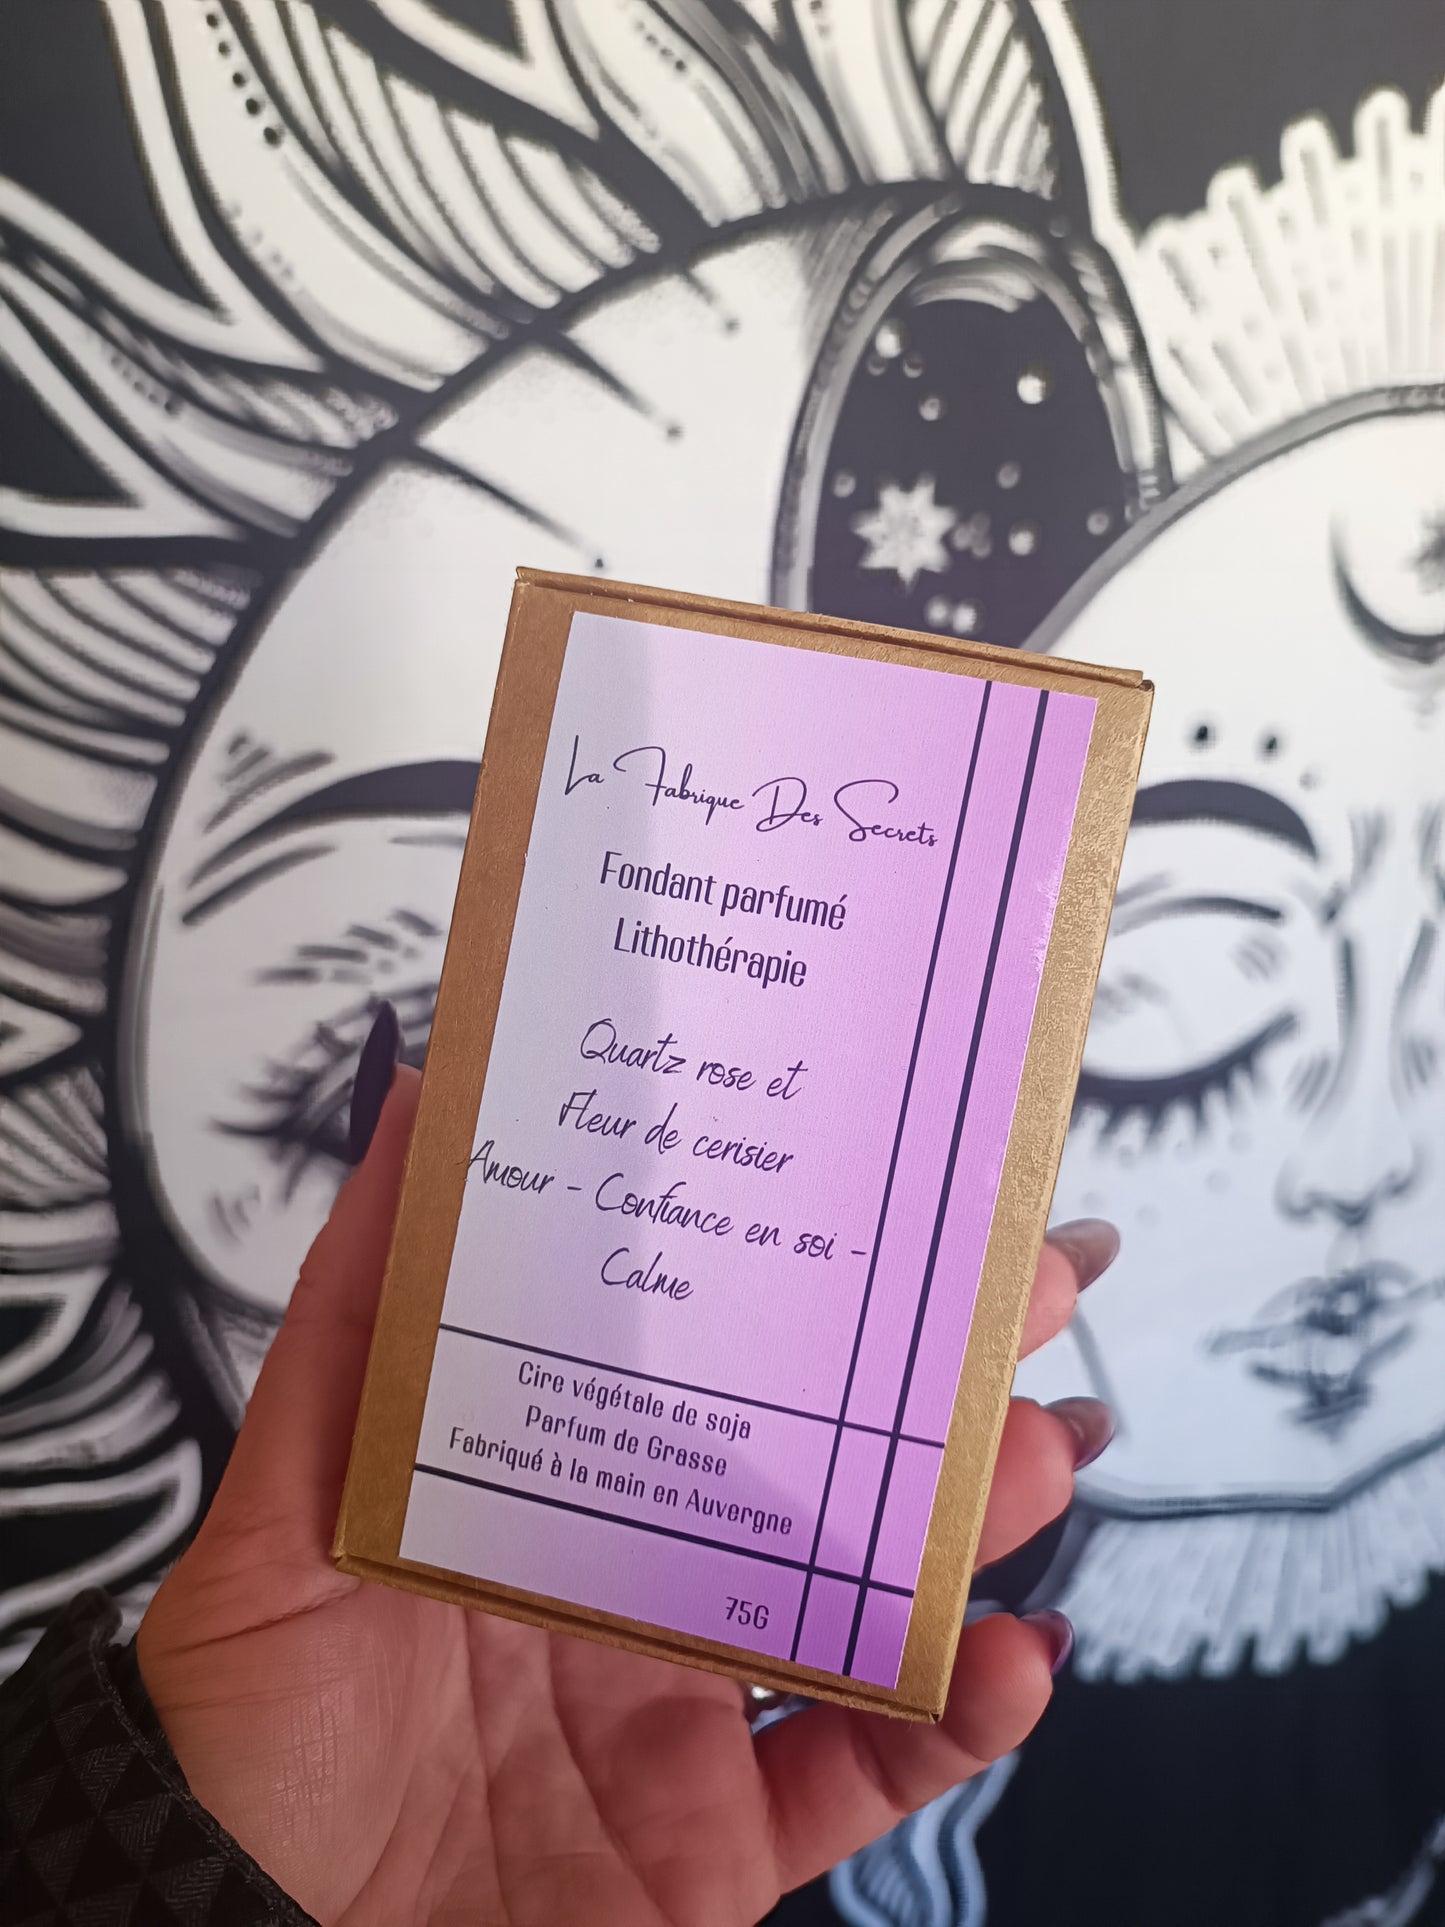 La Fabrique Des Secrets
Fondant parfumé
Lithothérapie
Quartz rose et
Fleur de cerisier
Amour - Confiance en soi -
Calme
Cire végétale de soja
Parfum de Grasse
Fabriqué à la main en Auvergne
75G